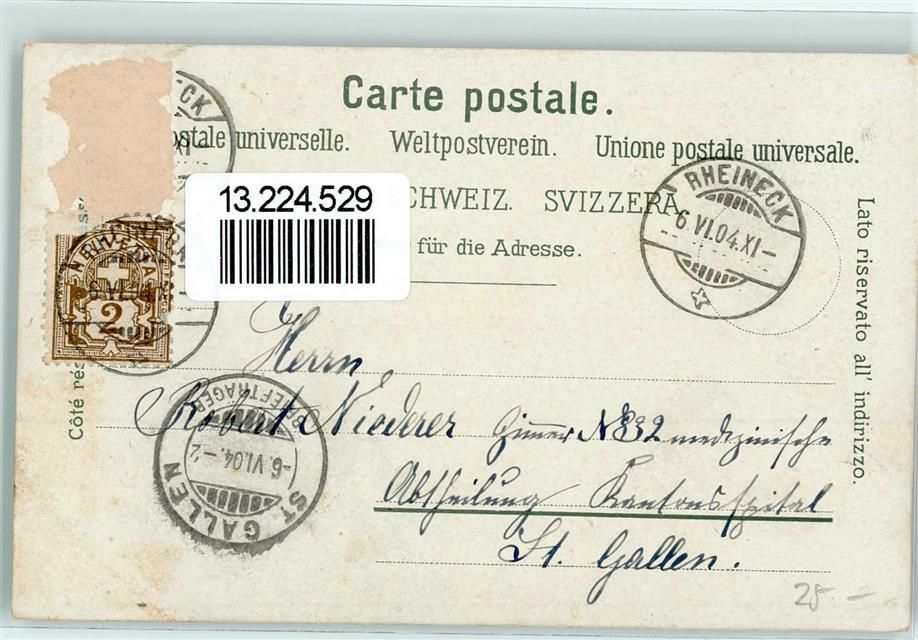 Carte postale.
postale universelle. Weltpostverein. Unione postale universale.
CHWEIZ. SVIZZERA
für die Adresse.
13.224.529
RHEINECK
6.VI.04.XI-
ECK
XI-
2
Côté rés
Lato riservato all' indirizzo.
Herrn
Robert Niederer Zimmer No 32 medizinische
Abtheilung Kantonsspital
St. Gallen.
ST. GALLEN
BRIEFTRÄGER
-6.VI.04.-2
25 -